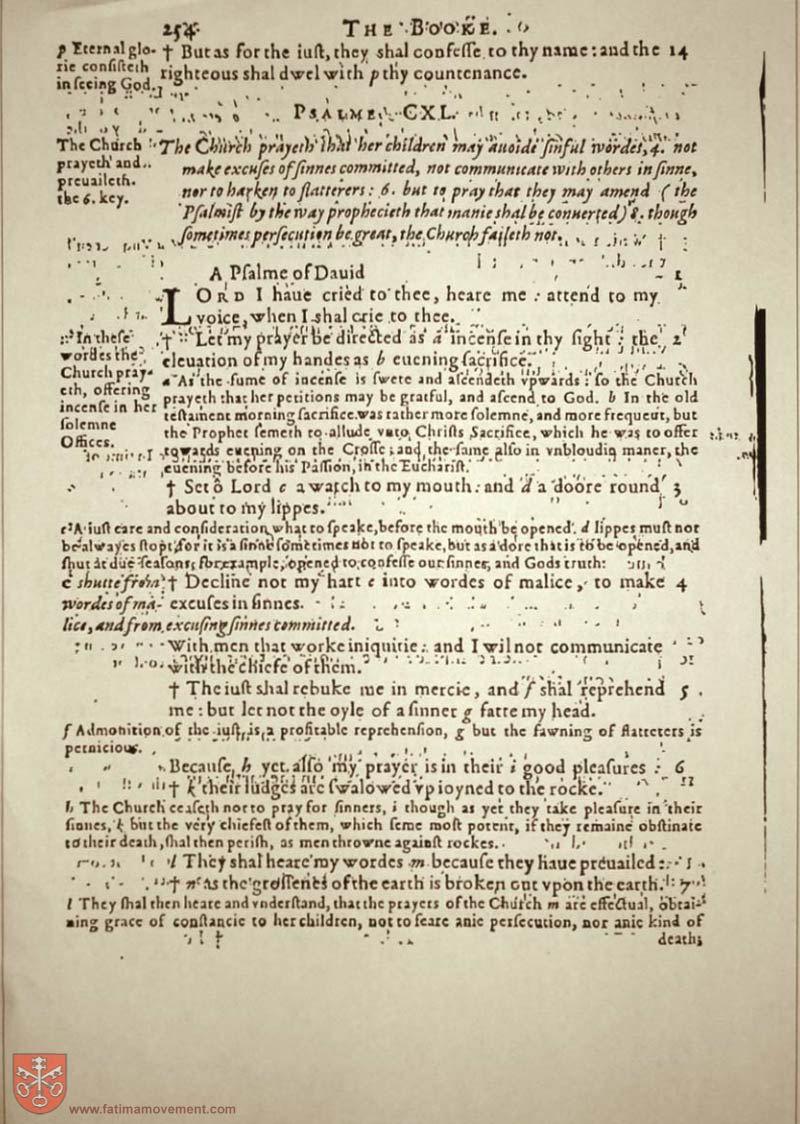 254 THE BOOKE.
p Eternal glo-
rie consisteth
in seeing God.
† But as for the iust, they shal confesse to thy name: and the 14
righteous shal dwel with p thy countenance.
PSALME CXL.
The Church
prayeth and
preuaileth.
the 6. key.
The Church prayeth that her children may auoide sinful wordes, 4. not
make excuses of sinnes committed, not communicate with others in sinne,
nor to harken to flatterers: 6. but to pray that they may amend (the
Psalmist by the way prophecieth that manie shal be conuerted) 8. though
sometimes persecution be great, the Church faileth not.
A Psalme of Dauid 1
LORD I haue cried to thee, heare me: attend to my
voice, when I shal crie to thee.
:: In these
wordes the
Church pray-
eth, offering
incense in her
solemne
Offices.
† :: Let my prayer be directed as a incense in thy sight: the 2
eleuation of my handes as b euening sacrifice.
a As the fume of incense is swete and ascendeth vpwards: so the Church
prayeth that her petitions may be gratful, and ascend to God. b In the old
testament morning sacrifice was rather more solemne, and more frequeut, but
the Prophet semeth to allude vnto Christs Sacrifice, which he was to offer
towards euening on the Crosse: and the same also in vnbloudig maner, the
euening before his Passion, in the Eucharist.
† Set ô Lord c a watch to my mouth: and d a doore round 3
about to my lippes.
c A iust care and consideration what to speake, before the mouth be opened. d lippes must not
be alwayes stopt, for it is a sinne sometimes not to speake, but as a dore that is to be opened, and
shut at due seasons, for example, opened to confesse our sinnes, and Gods truth:
e shutte from † Decline not my hart e into wordes of malice, to make 4
wordes of ma- excuses in sinnes.
lice, and from excusing sinnes committed.
With men that worke iniquitie: and I wil not communicate
with the chiefe of them.
† The iust shal rebuke me in mercie, and f shal reprehend 5
me: but let not the oyle of a sinner g fatte my head.
f Admonition of the iust, is a profitable reprehension, g but the fawning of flatteters is
pernicious.
Because, h yet also my prayer is in their i good pleasures: 6
† k their Iudges are swalowed vp ioyned to the rocke.
h The Church ceaseth not to pray for sinners, i though as yet they take pleasure in their
sinnes, k but the very chiefest of them, which seme most potent, if they remaine obstinate
to their death, shal then perish, as men throwne against rockes.
l They shal heare my wordes m because they haue preuailed:
† n As the grossenes of the earth is broken out vpon the earth. 7
l They shal then heare and vnderstand, that the prayers of the Church m are effectual, obtai-
ning grace of constancie to her children, not to feare anie persecution, nor anie kind of
death;
www.fatimamovement.com